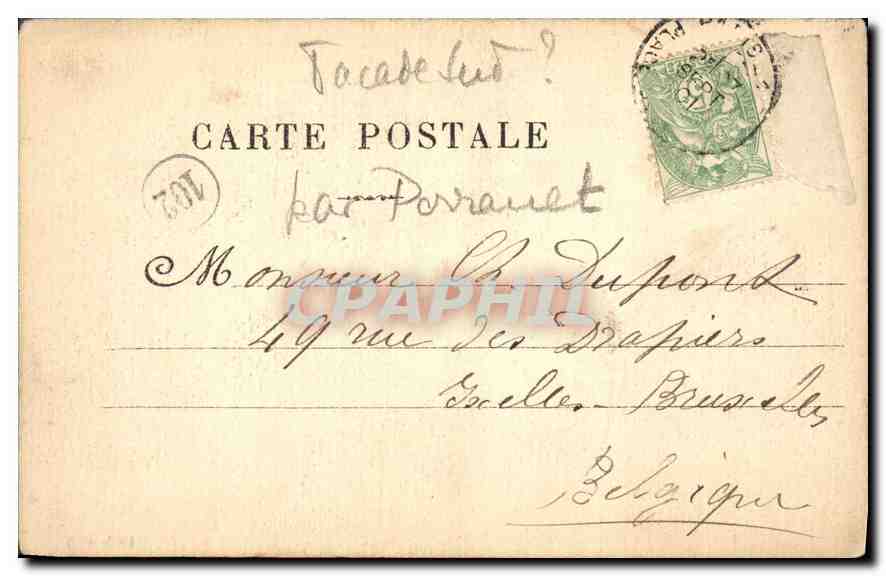 Façade Sud ?
CARTE POSTALE
102
par Perrauet
Monsieur Ch. Dupont
CPAPHIL
49 rue des Drapiers
Ixelles-Bruxelles
Belgique